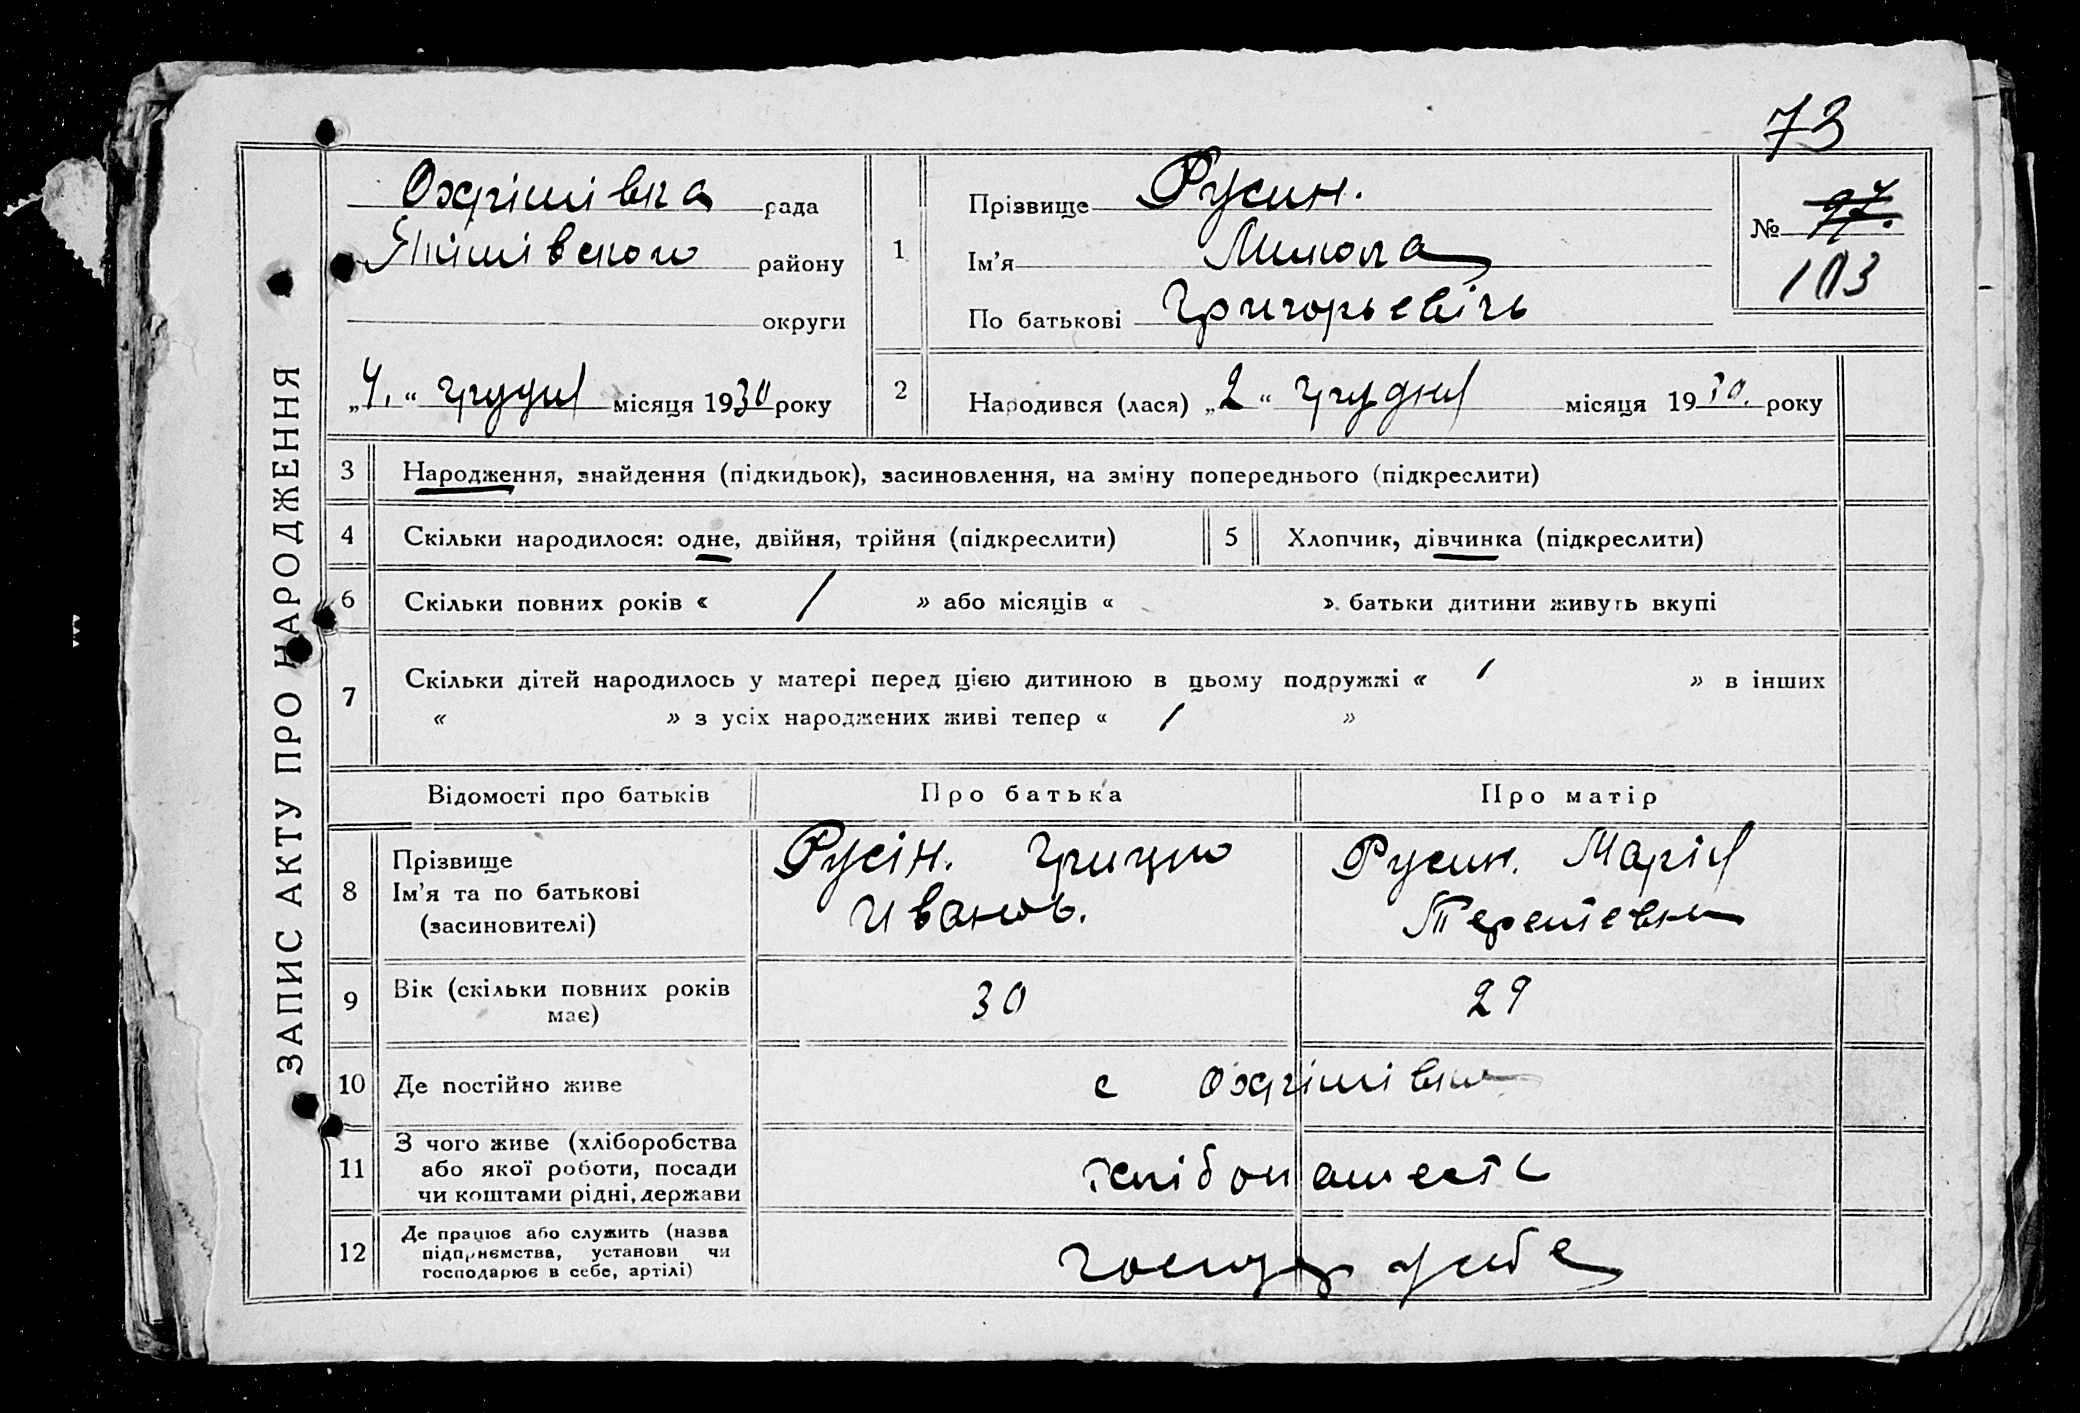 73
Охрімівка рада
Якімівского району
округи
„4.“ грудня місяця 1930 року
1
Прізвище Русин.
Ім'я Микола
По батькові Григорьевічь
№ 97.
103
2
Народився (лася) „2“ грудня місяця 1930. року
ЗАПИС АКТУ ПРО НАРОДЖЕННЯ
3 Народження, знайдення (підкидьок), засиновлення, на зміну попереднього (підкреслити)
4 Скільки народилося: одне, двійня, трійня (підкреслити) 5 Хлопчик, дівчинка (підкреслити)
6 Скільки повних років « / » або місяців « » батьки дитини живуть вкупі
7 Скільки дітей народилось у матері перед цією дитиною в цьому подружжі « / » в інших
« » з усіх народжених живі тепер « / »
Відомості про батьків Про батька Про матір
8 Прізвище
Ім'я та по батькові
(засиновителі)
Русін. Грицко
Иванов.
Русин. Марія
Терентевна
9 Вік (скільки повних років
має)
30 29
10 Де постійно живе с Охрімівка
11 З чого живе (хліборобства
або якої роботи, посади
чи коштами рідні, держави
12 Де працює або служить (назва
підприємства, установи чи
господарює в себе, артілі)
господ у себе